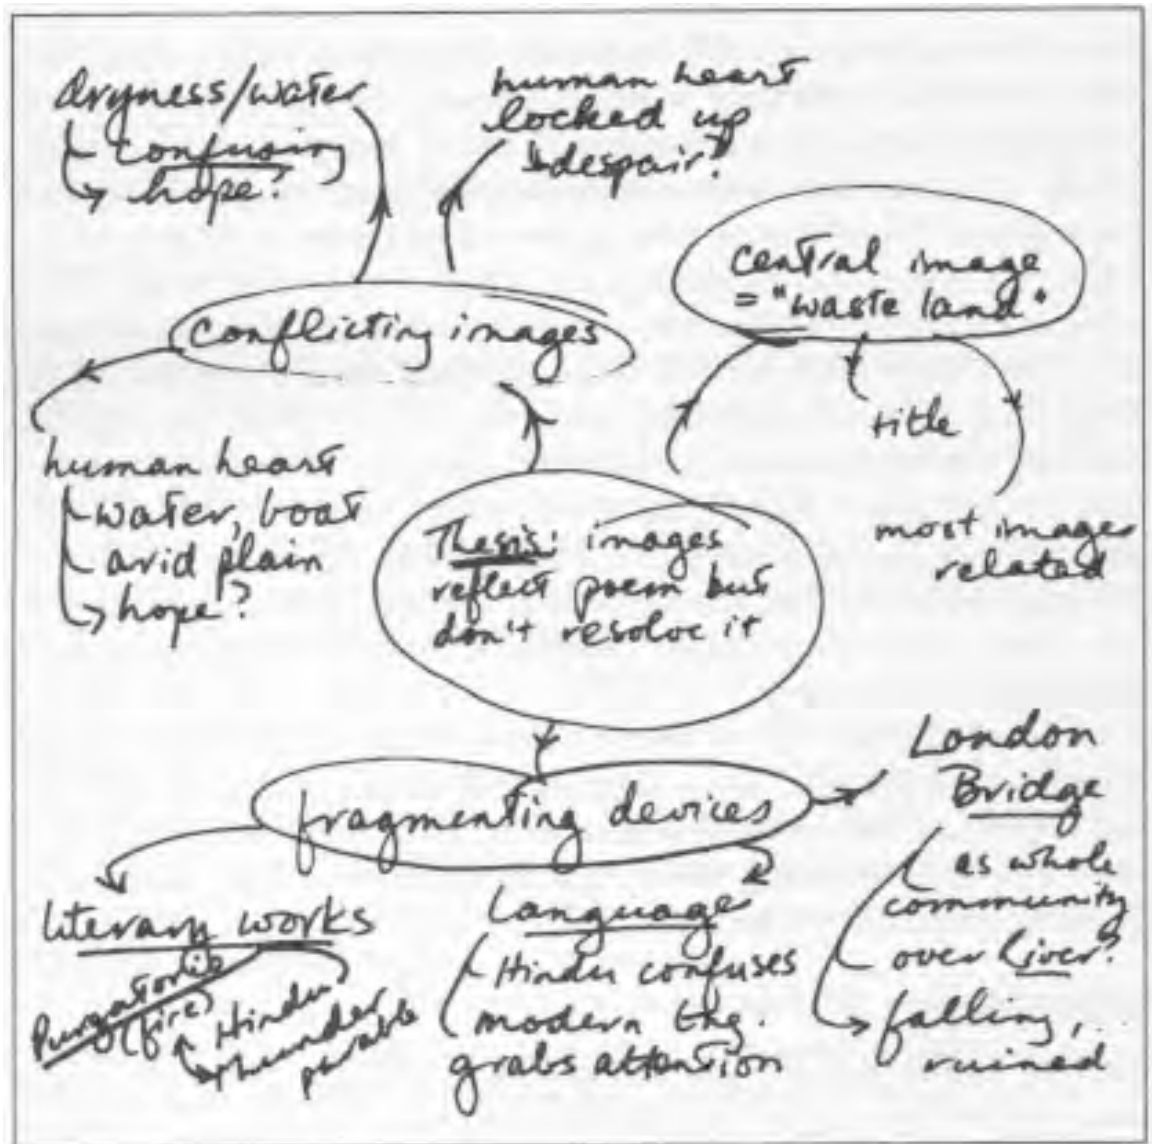 dryness/water
confusing
hope?
human heart
locked up
despair?
central image
= "waste land"
conflicting images
title
most images
related
human heart
water, boat
arid plain
hope?
Thesis: images
reflect poem but
don't resolve it
fragmenting devices
London
Bridge
as whole
community
over river?
falling,
ruined
literary works
Purgatorio
(fire)
Hindu
thunder
parable
Language
Hindu confuses
modern
grabs attention